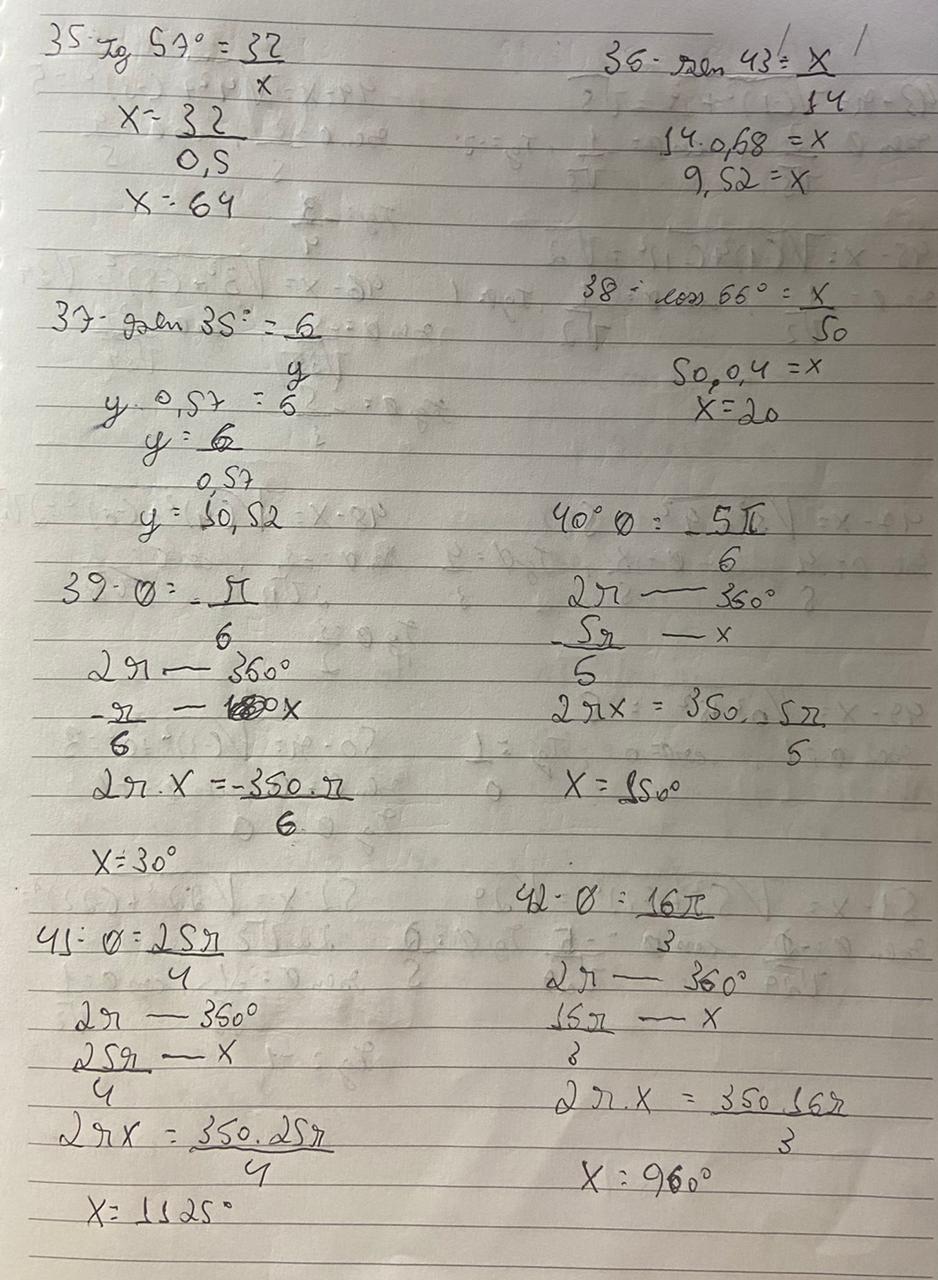 35- tg 57° = 32/x
x = 32/0,5
x = 64
36- sen 43 = x/14
14.0,68 = x
9,52 = x
37- sen 35° = 6/y
y. 0,57 = 6
y = 6/0,57
y = 10,52
38- cos 66° = x/50
50.0,4 = x
x = 20
39- θ = -π/6
2π — 360°
-π/6 — x
2π.x = -360.π/6
x = 30°
40° θ = -5π/6
2π — 360°
-5π/6 — x
2πx = 360. -5π/6
x = 150°
41- θ = 25π/4
2π — 360°
25π/4 — x
2πx = 360.25π/4
x = 1125°
42- θ = 16π/3
2π — 360°
16π/3 — x
2π.x = 360.16π/3
x = 960°